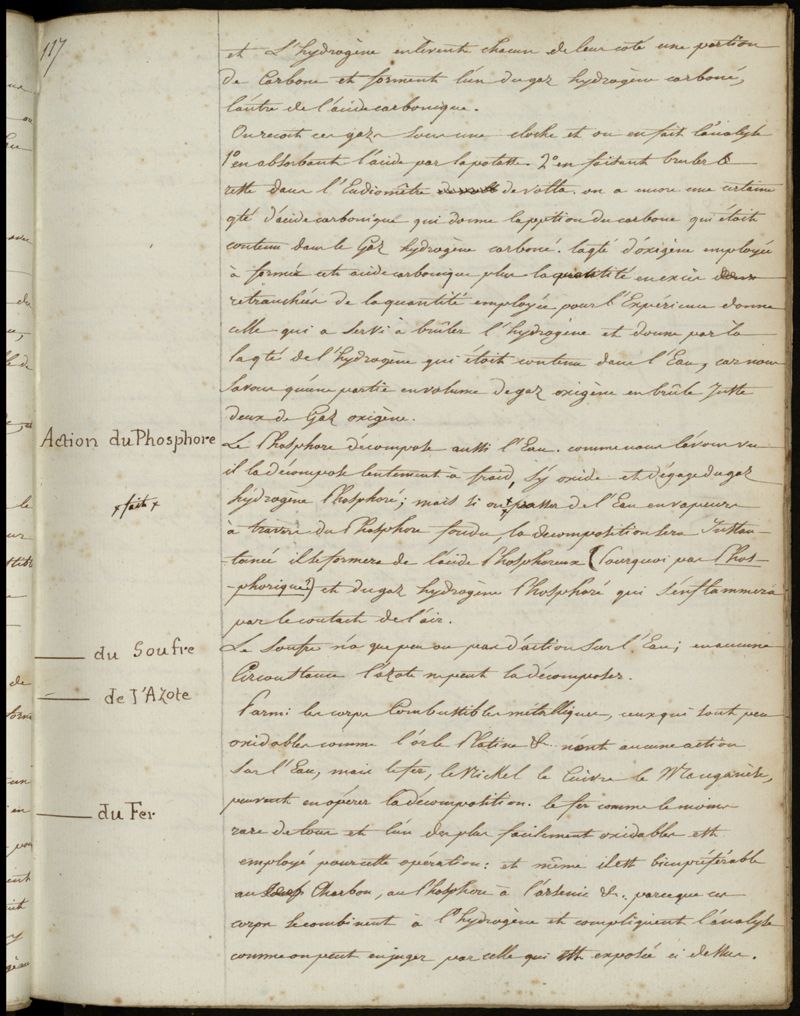 117
et l'hydrogène enlèvent chacun de leur coté une portion
de Carbone et forment l'un du gaz hydrogène carboné,
l'autre de l'acide carbonique.
On reçoit ces gaz sous une cloche et on en fait l'analyse
1° en absorbant l'acide par la potasse. 2° en faisant bruler le
reste dans l'Eudiomètre de volta, on a encore une certaine
qté d'acide carbonique qui donne la pption du carbone qui était
contenu dans le Gaz hydrogène carboné. la qté d'oxigène employée
à former cet acide carbonique plus la quantité en excès
retranchées de la quantité employée pour l'Expérience donne
celle qui a servi à brûler l'hydrogène et donne par là
la qté de l'hydrogène qui était contenu dans l'Eau, car nous
savons qu'une partie en volume de gaz oxigène en brûle juste
deux de Gaz oxigène.
Action du Phosphore
Le Phosphore décompose aussi l'Eau. comme nous l'avons vu
il la décompose lentement à froid, s'y oxide et dégage du gaz
x fait x
hydrogène Phosphoré; mais si on passer de l'Eau en vapeurs
à travers du Phosphore fondu, la décomposition sera Instan-
tanée il se formera de l'acide Phosphoreux (Pourquoi pas Phos-
-phorique?) et du gaz hydrogène Phosphoré qui s'enflammera
par le contact de l'air.
du Soufre
Le Soufre n'a que peu ou pas d'action sur l'Eau; en aucune
Circonstance l'azote ne peut la décomposer.
de l'Azote
Parmi les corps Combustibles métalliques, ceux qui sont peu
oxidables comme l'or le Platine &. n'ont aucune action
sur l'Eau, mais le fer, le Nickel le Cuivre le Manganèse,
peuvent en opérer la décomposition. le fer comme le moins
du Fer
rare de tous et l'un des plus facilement oxidables est
employé pour cette opération: et même il est bien préférable
au Charbon, au Phosphore à l'arsenic &. parceque ces
corps se combinent à l'hydrogène et compliquent l'analyse
comme on peut en juger par celle qui est exposée ci dessus.